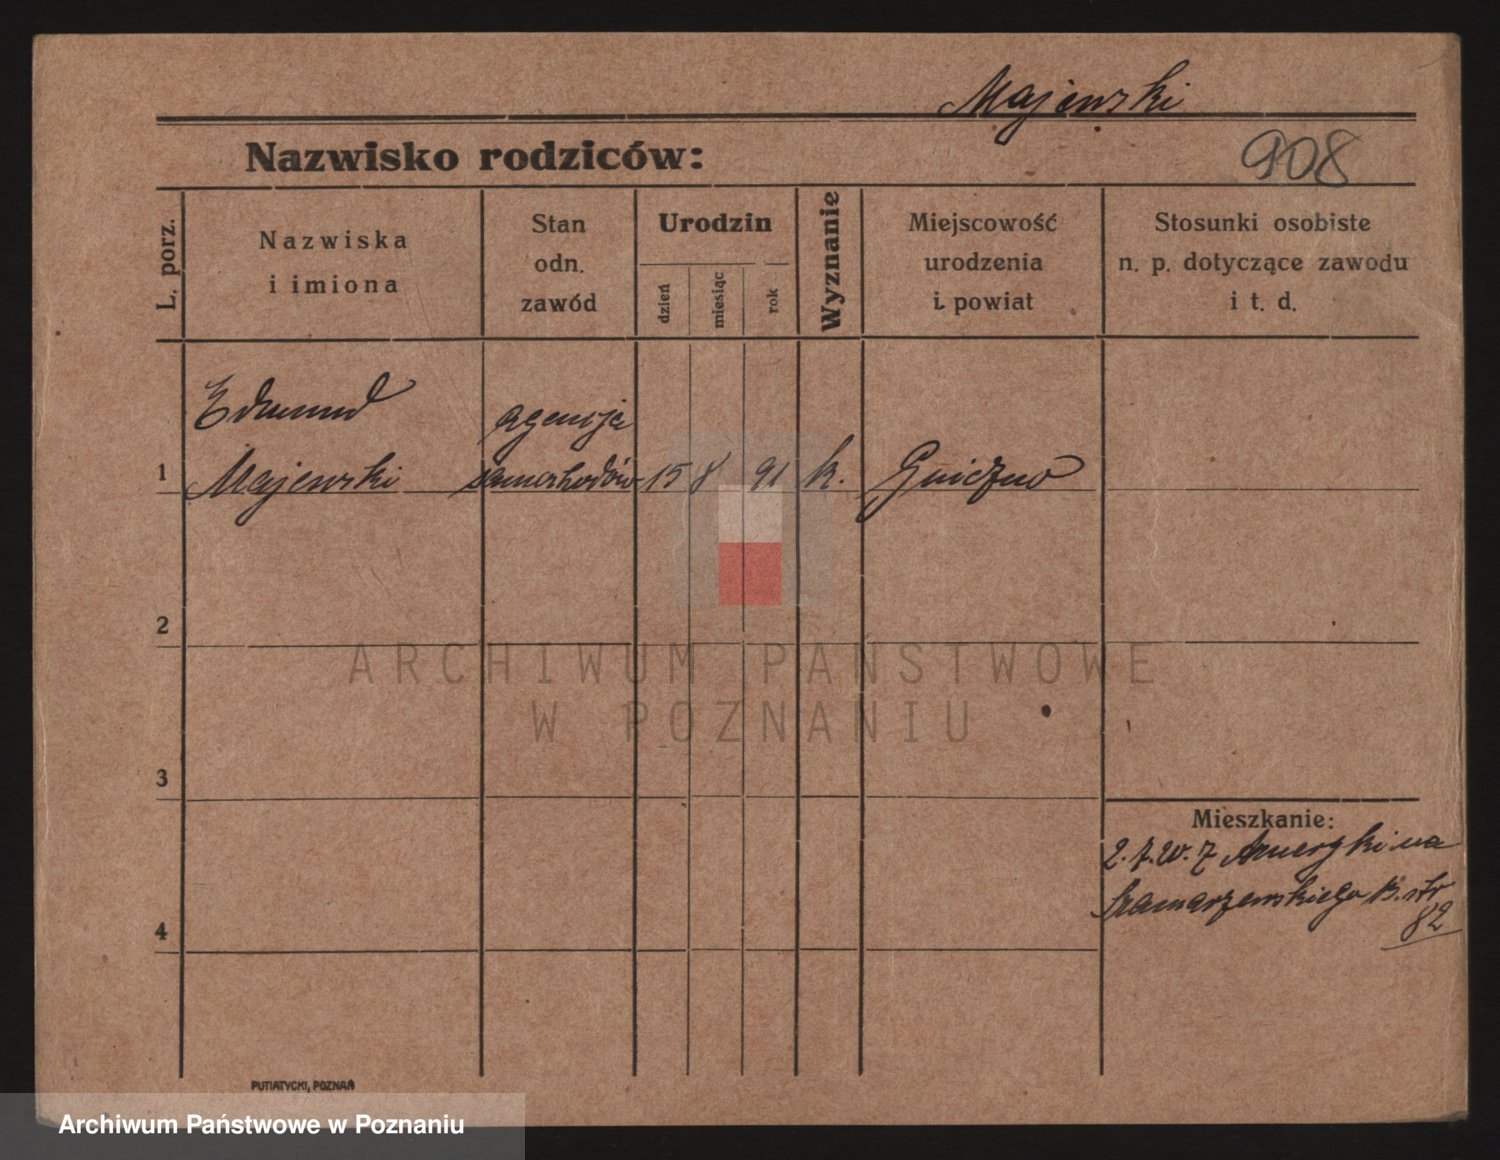 Majewski
Nazwisko rodziców:
908
L. porz.
Nazwiska
i imiona
Stan
odn.
zawód
Urodzin
dzień
miesiąc
rok
Wyznanie
Miejscowość
urodzenia
i powiat
Stosunki osobiste
n. p. dotyczące zawodu
i t. d.
1
Edmund
Majewski
agencja
samochodów
15
8
91
k.
Gniezno
2
3
4
Mieszkanie:
2.7.20. z Ameryki na
Szamarzewskiego str
82
ARCHIWUM PAŃSTWOWE
W POZNANIU
PUTIATYCKI, POZNAŃ
Archiwum Państwowe w Poznaniu